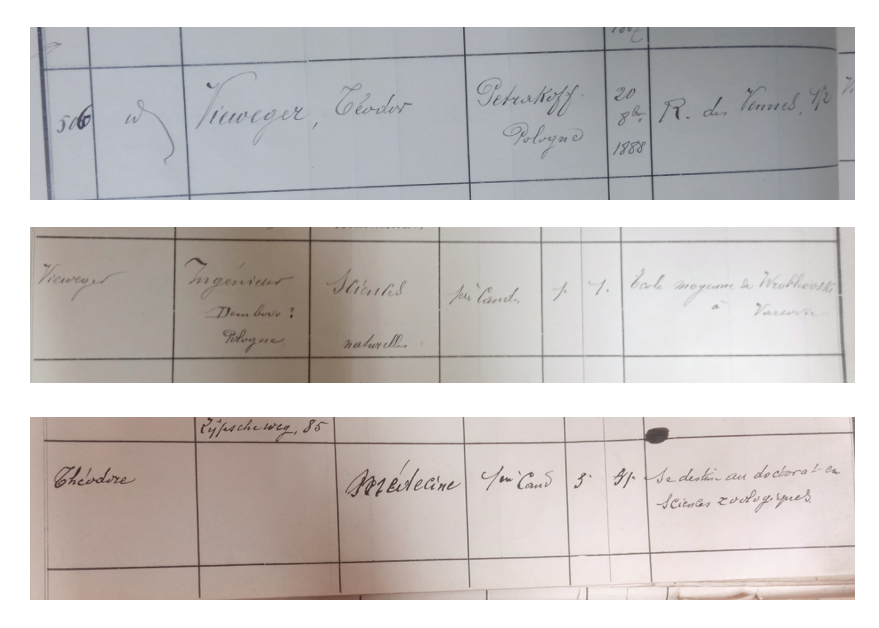 506
Vieweger, Téodor
Petrokoff
Pologne
20
8bre
1888
R. des Vennes,
Vieweger
Ingénieur
Dombowo ?
Pologne
Sciences
naturelles
1ère Cand.
Ecole moyenne de Wroblewski
à Varsovie
Zÿpscheweg, 85
Théodore
Médecine
1ère Cand
3
Se destine au doctorat en
sciences zoologiques